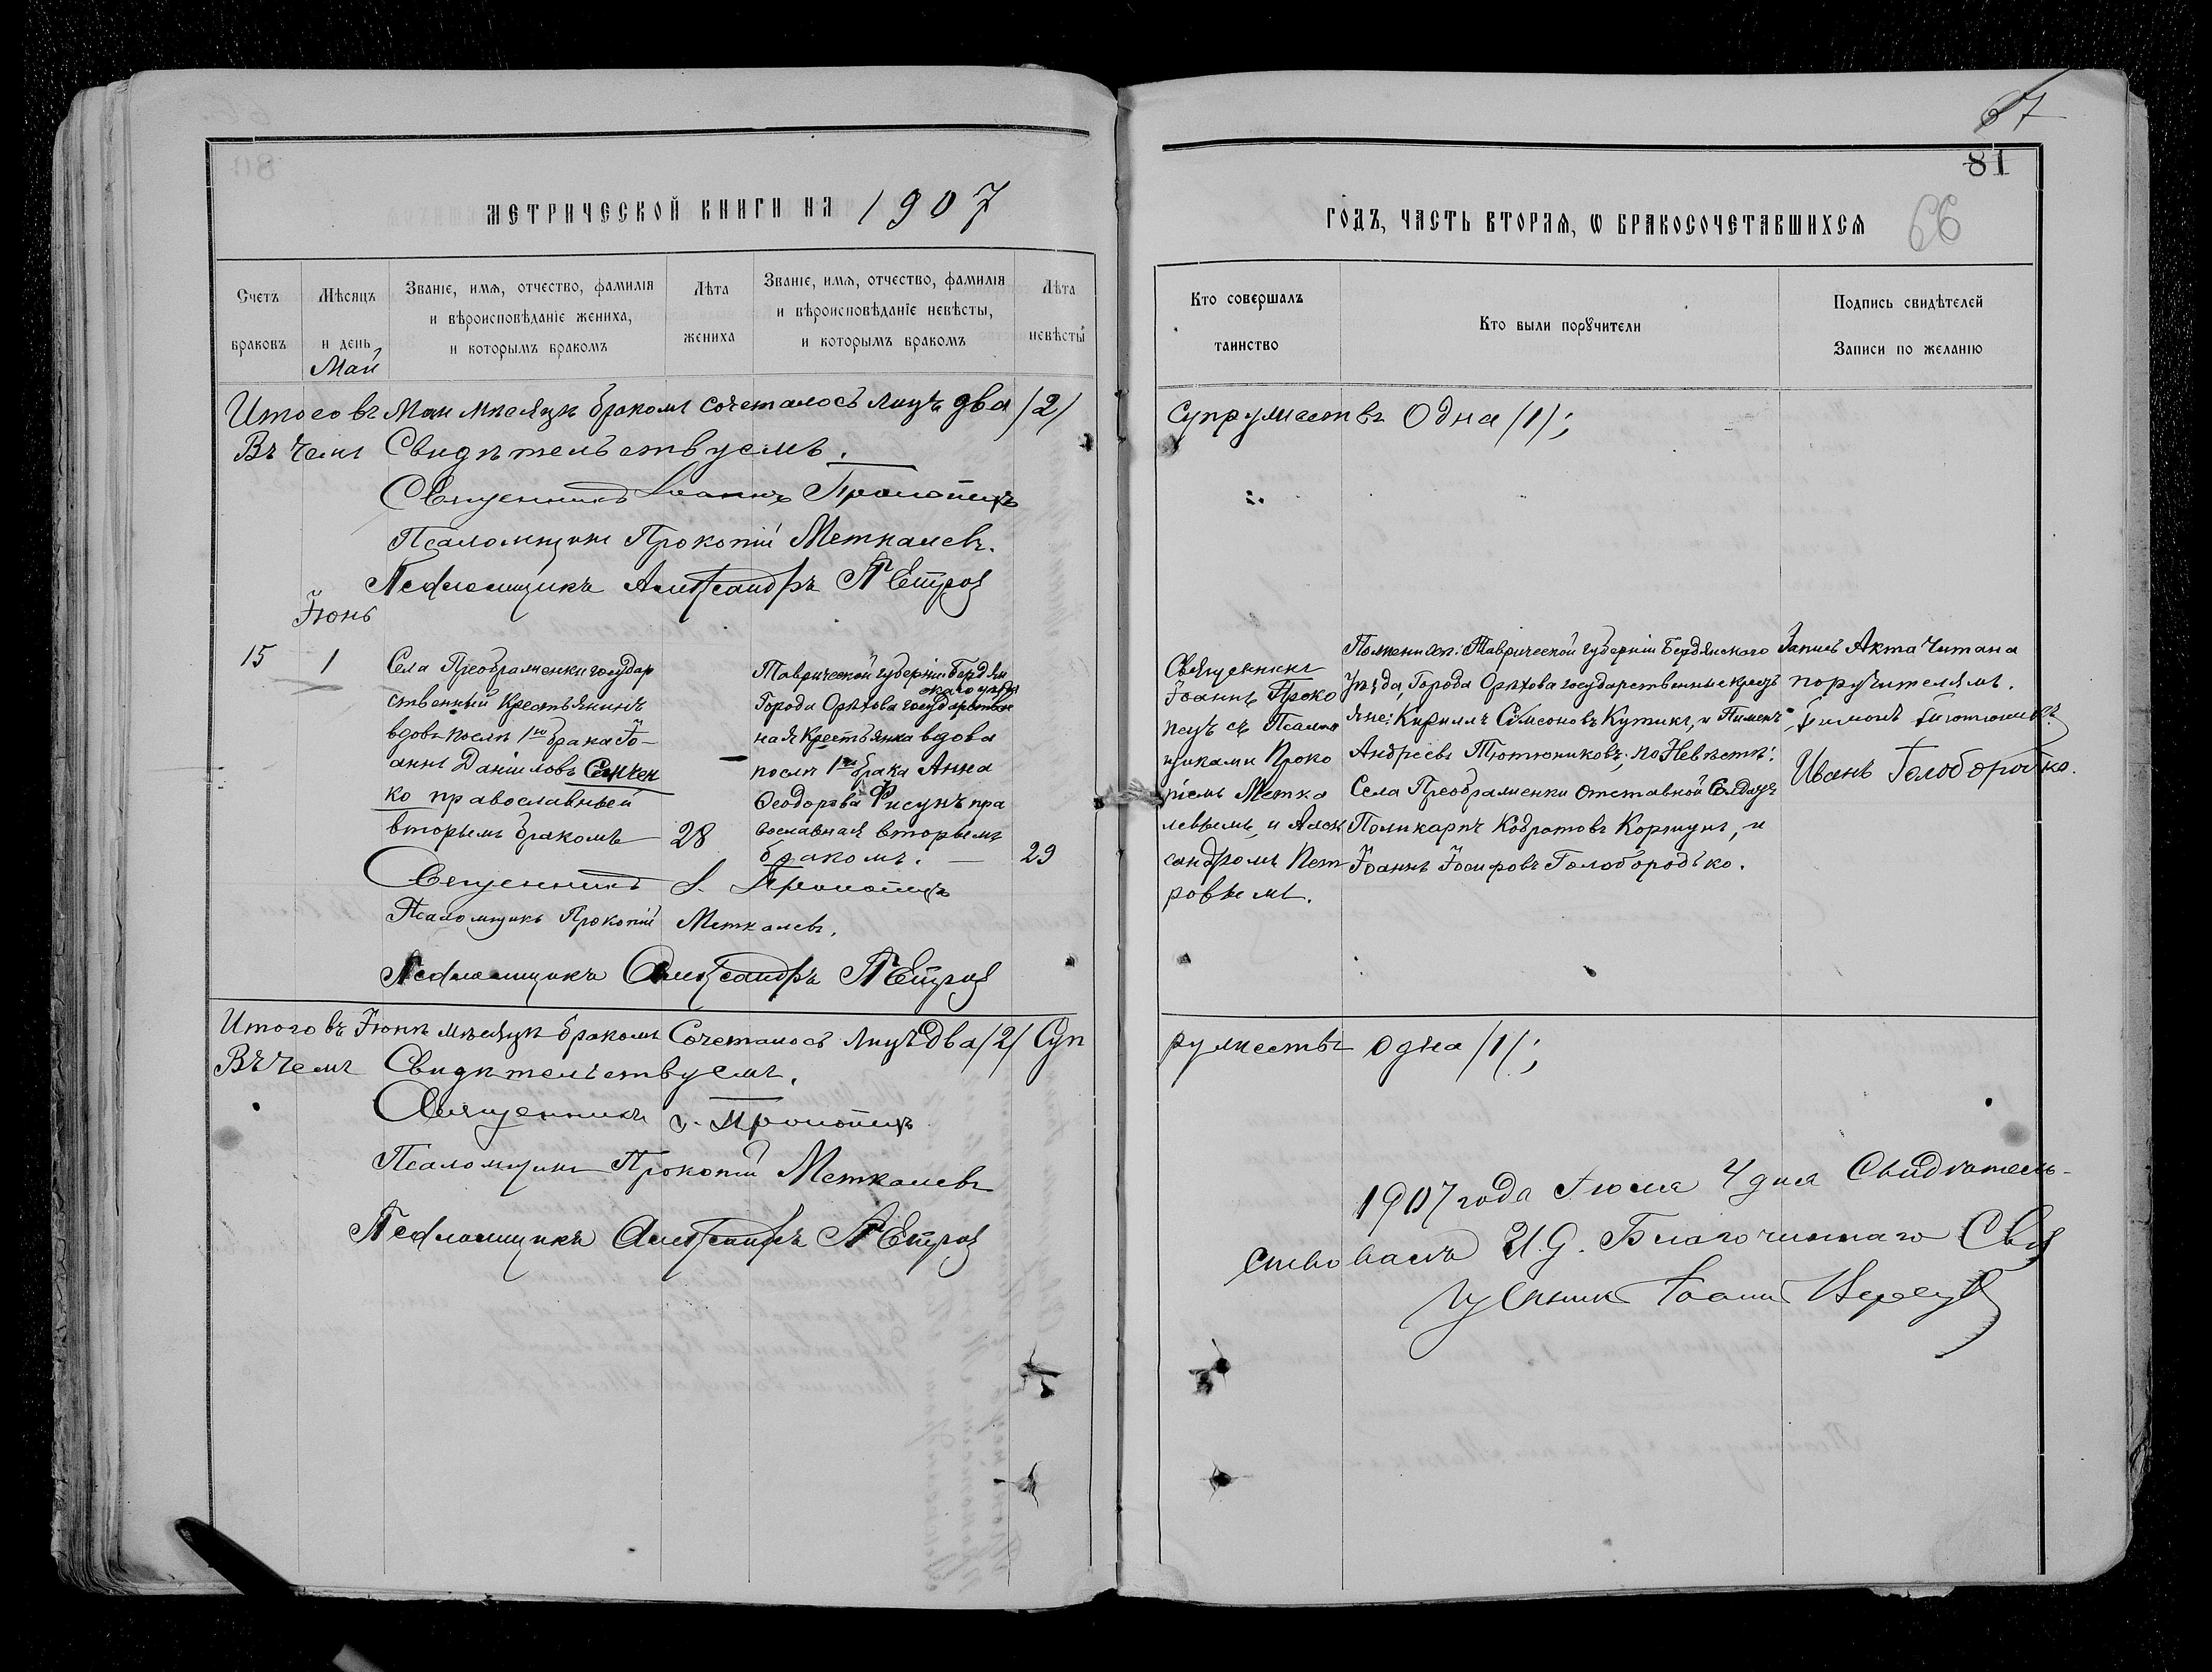 МЕТРИЧЕСКОЙ КНИГИ НА 1907
Счетъ браковъ
Мѣсяцъ и день
Званіе, имя, отчество, фамилія и вѣроисповѣданіе жениха, и которымъ бракомъ
Лѣта жениха
Званіе, имя, отчество, фамилія и вѣроисповѣданіе невѣсты, и которымъ бракомъ
Лѣта невѣсты
Май
Итого въ Маи мѣсяцѣ бракомъ сочеталось лицъ два /2/
Въ чемъ Свидѣтельствуемъ.
Священникъ Іоаннъ Прокопецъ
Псаломщикъ Прокопій Меткалевъ.
Псаломщикъ Александръ Петров
Іюнь
15 1
Села Преображенки государ
ственный Крестьянинъ
вдовъ послѣ 1го брака Іо-
аннъ Даніиловъ
ко православный
вторымъ бракомъ
28
Таврической губерніи Бердян
скаго уѣзда
Города Орѣхова государствен
ная Крестьянка вдова
послѣ 1го брака Анна
Ѳеодорова Фисунъ пра
вославная вторымъ
бракомъ.
29
Священникъ І. Прокопецъ
Псаломщикъ Прокопій Меткалевъ.
Псаломщикъ Александръ Петров
Итого въ Іюнѣ мѣсяцѣ бракомъ Сочеталось лицъ два /2/ Суп
Въ чемъ Свидѣтельствуемъ.
Священникъ І. Прокопецъ
Псаломщикъ Прокопій Меткалевъ
Псаломщикъ Александръ Петров
67
81
66
ГОДЪ, ЧАСТЬ ВТОРАЯ, Ѡ БРАКОСОЧЕТАВШИХСЯ
Кто совершалъ таинство
Кто были порꙋчители
Подпись свидѣтелей Записи по желанію
Супружествъ Одна /1/;
Священникъ
Іоаннъ Проко
пецъ съ Псалом
щиками Проко
піемъ Метка
левымъ, и Алек
сандромъ Пет
ровымъ.
По женихѣ: Таврической губерніи Бердянского
Уѣзда, Города Орѣхова государственные крестъ
яне: Кириллъ Самсоновъ Кутикъ, и Пименъ
Андреевъ Тютюниковъ; по Невѣстѣ:
Села Преображенки отставной Солдатъ
Поликарпъ Кодратовъ Коршунъ, и
Іоаннъ Іосифовъ Голобородько.
Запись Акта Читана
поручителямъ.
Иванъ Голобородко.
ружествъ одна /1/;
1907 года Іюля 4 дня Свидѣтель-
ствовалъ И.д. Благочиннаго Свя
щенник Іоанн